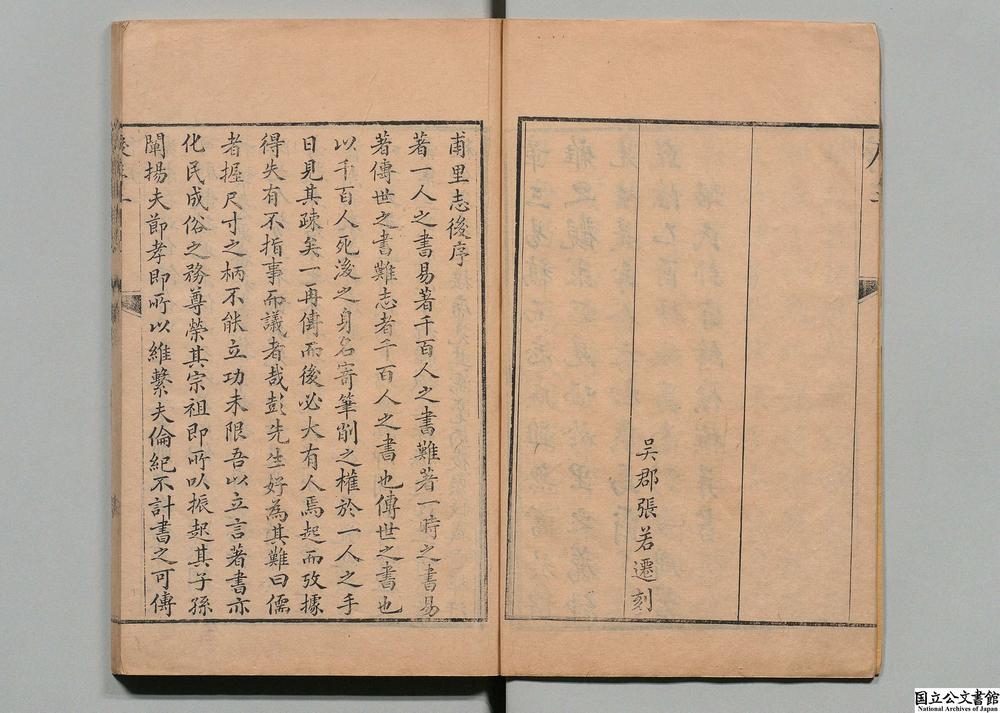 吳郡張若遷刻
甫里志後序
著一人之書易著千百人之書難著一時之書易
著傳世之書難志者千百人之書也傳世之書也
以千百人死後之身名寄筆削之權於一人之手
日見其疎矣一再傳而後必大有人焉起而攷據
得失有不指事而議者哉彭先生好為其難曰儒
者握尺寸之柄不能立功未限吾以立言著書亦
化民成俗之務尊榮其宗祖即所以振起其子孫
闡揚夫節孝即所以維繫夫倫紀不計書之可傳
国立公文書館
National Archives of Japan